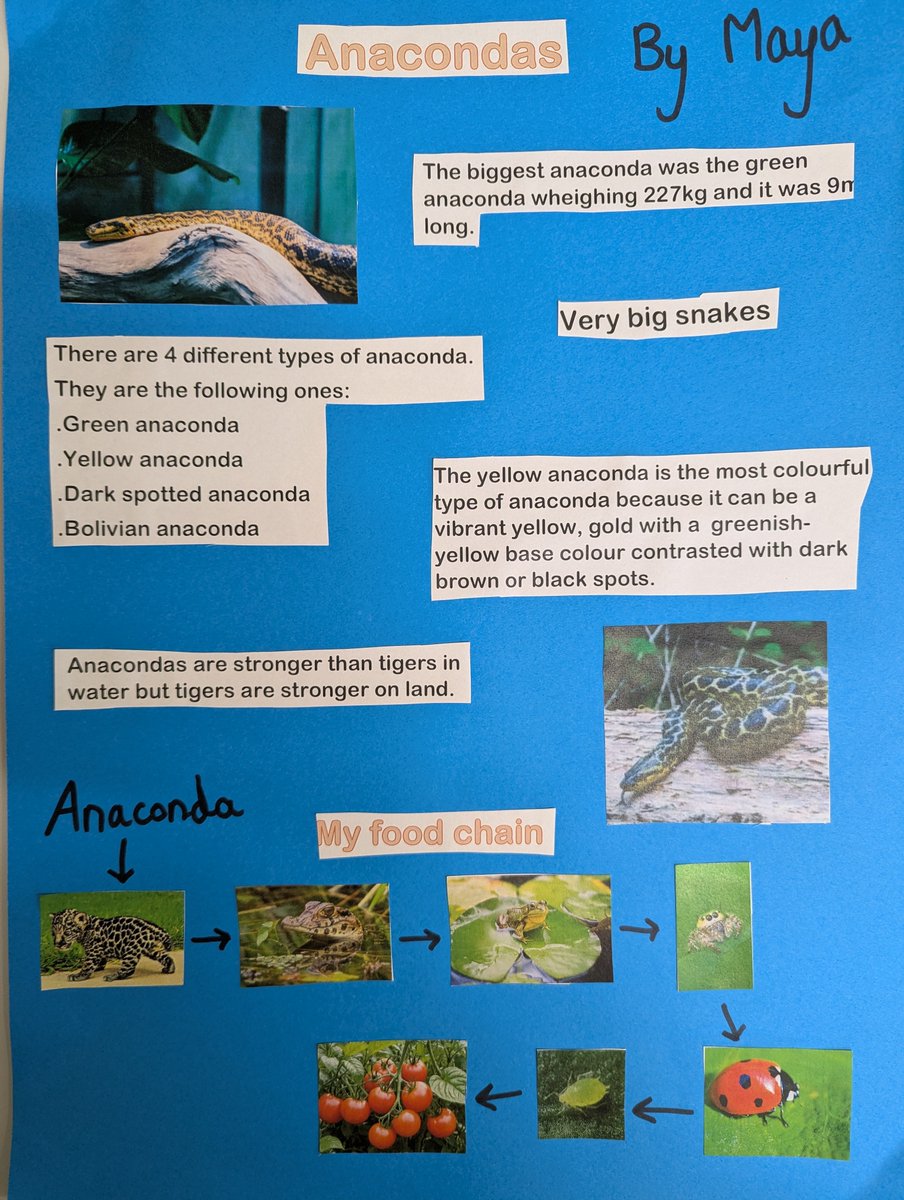 Anacondas
By Maya
The biggest anaconda was the green
anaconda wheighing 227kg and it was 9m
long.
Very big snakes
There are 4 different types of anaconda.
They are the following ones:
.Green anaconda
.Yellow anaconda
.Dark spotted anaconda
.Bolivian anaconda
The yellow anaconda is the most colourful
type of anaconda because it can be a
vibrant yellow, gold with a greenish-
yellow base colour contrasted with dark
brown or black spots.
Anacondas are stronger than tigers in
water but tigers are stronger on land.
Anaconda
My food chain